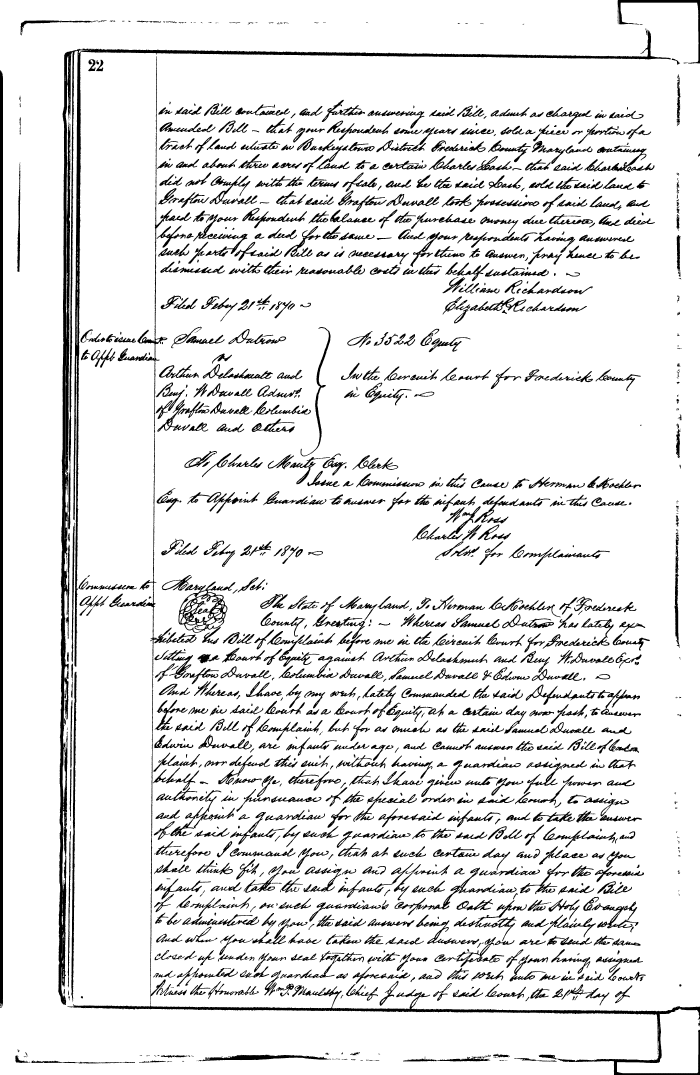 22
in said Bill contained, and further answering said Bill, admit as charged in said
Amended Bill – that your Respondent some years since, sold a piece or portion of a
tract of land situate in Buckeystown District Frederick County Maryland containing
in and about three acres of land to a certain Charles Cash – that said Charles Cash
did not comply with the terms of sale, and he the said Cash, sold the said land to
Grafton Duvall – that said Grafton Duvall took possession of said land, and
paid to your Respondent the balance of the purchase money due thereon, and died
before receiving a deed for the same – And your respondents having answered
such parts of said Bill as is necessary for them to answer, pray hence to be
dismissed with their reasonable costs in this behalf sustained. ~
William Richardson
Filed Feby 21st 1870 ~ Elizabeth Richardson
Order to issue Com
to Appt Guardian
Samuel Dutrow
vs
Arthur Delashmutt and
Benj. W Duvall Admrs.
of Grafton Duvall Columbia
Duvall and others
No 3522 Equity
In the Circuit Court for Frederick County
in Equity. ~
To Charles Mantz Esq. Clerk
Issue a Commission in this Cause to Herman C Koehler
Esq. to Appoint Guardian to answer for the infant defendants in this Cause.
Wm J Ross
Charles W Ross
Filed Feby 21st 1870 ~ Solrs. for Complainants
Commission to
Appt Guardian
Maryland, Sct:
Seal
The State of Maryland, To Herman C Koehler of Frederick
County, Greeting: – Whereas Samuel Dutrow has lately ex-
hibited his Bill of Complaint before me in the Circuit Court for Frederick County
sitting as a Court of Equity against Arthur Delashmutt and Benj W Duvall Exrs.
of Grafton Duvall, Columbia Duvall, Samuel Duvall & Edwin Duvall. ~
And Whereas, I have, by my writ, lately commanded the said Defendants to appear
before me in said Court as a Court of Equity, at a certain day now past, to answer
the said Bill of Complaint, but for as much as the said Samuel Duvall and
Edwin Duvall, are infants under age, and cannot answer the said Bill of Com
plaint, nor defend this suit, without having a guardian assigned in that
behalf – Know Ye, therefore, that I have given unto you full power and
authority in pursuance of the special order in said Court, to assign
and appoint a guardian for the aforesaid infants, and to take the answer
of the said infants, by such guardian to the said Bill of Complaint, and
therefore I command You, that at such certain day and place as you
shall think fit, you assign and appoint a guardian for the aforesaid
infants, and take the said infants, by such guardian, to the said Bill
of Complaint, on such guardian's corporal Oath upon the Holy Evangely
to be administered by you, the said answers being distinctly and plainly wrote;
And when you shall have taken the said answers, you are to send the same
closed up under your seal together with your certificate of your having assigned
and appointed such guardian as aforesaid, and this writ unto me in said Court.
Witness the Honorable Wm P. Maulsby, Chief Judge of said Court, the 21st day of